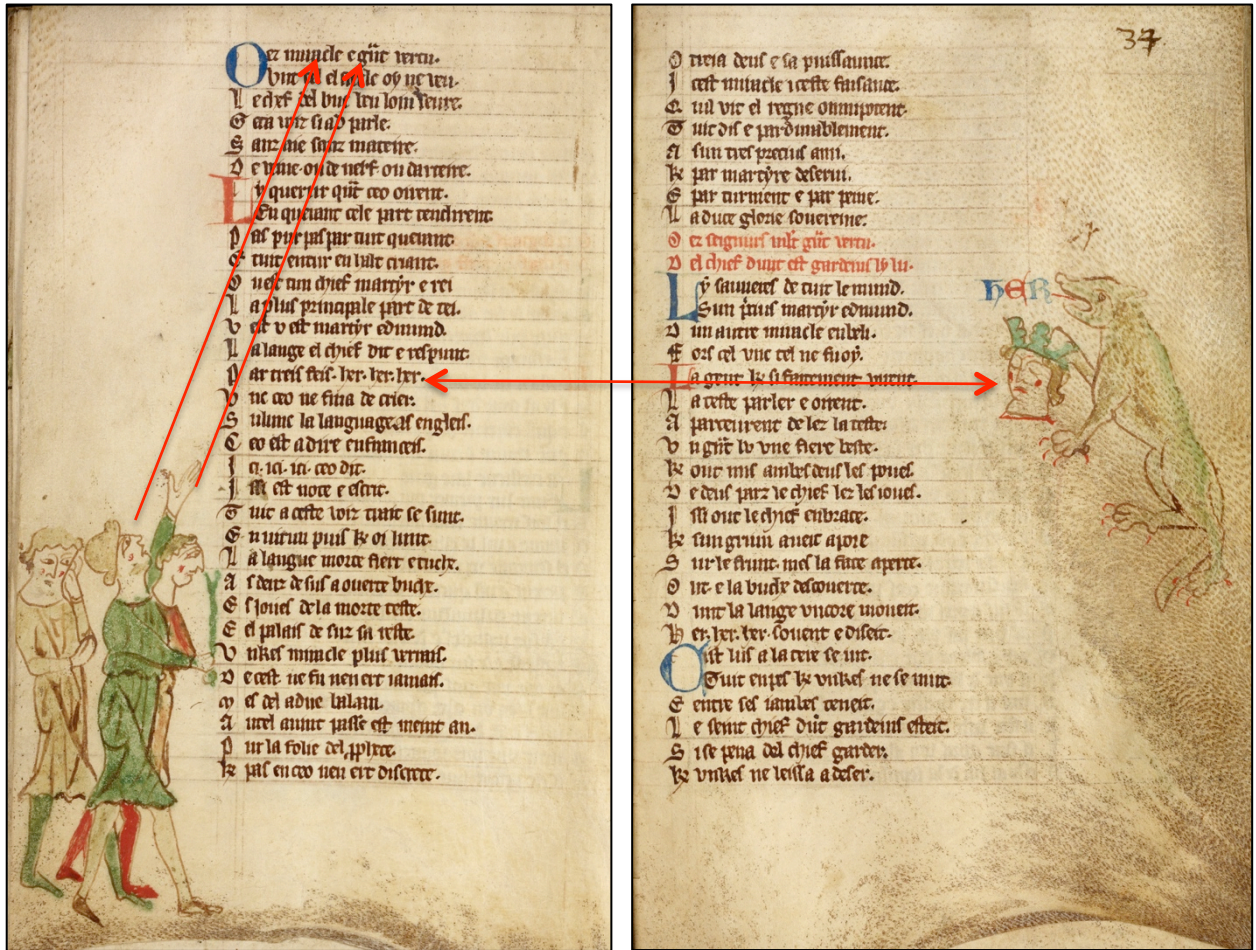 Oez miracle e gñt vertu.
Vnc el siecle oy ne veu.
Le chef del buc veu loin seure.
Geta voiz si ad parle.
Sanz nie sanz mateire.
De veine. ou de nerf ou darteire.
Ly querur qũt ceo oirent.
Eu querant cele part tendirent.
Pas pur pas par tut querant.
E tuit entur en halt criant.
O v est tun chief martyr e rei
La plus principale part de tei.
V est v est martyr edmund.
La lange el chief dit e respunt.
Par treis feis. her. her. her.
Vnc ceo ne fina de crier.
Sulunc la language as engleis.
Ceo est a dire en franceis.
Ici. ici. ici. ceo dit.
Issi est note e escrit.
Tuit a ceste voiz trait se sunt.
En virun puis ke oi lunt.
La langue morte fiert e tuche.
As denz desus a ouerte buche.
Es ioues de la morte teste.
E el palais de sur sa teste.
Vnkes miracle plus verrais.
De cest ne fu nen ert iamais.
Mes del adne balaan.
Autel auint passe est meint an.
Pur la folie del pphete.
Ke pas en ceo nen ert discrete.
37
Otreia deus e sa puissance.
Icest miracle iceste faisance.
Ea vit el regne omnipotent.
Tuit dis e pardurablement.
A sun tres precius ami.
Ke par martyre deserui.
E par turment e par peine.
La duce glorie souereine.
Oez seignurs mlt gñt vertu.
Del chief dunt est gardeins ly lu.
Ly sauueres de tuit le mund.
Sun pcius martyr edmund.
Dun autre miracle enbeli.
Fors cel vnc tel ne fu oy.
La gent ke si faitement vunt.
La teste parler e oirent.
Aparceurent de lez la teste.
Vn gñt lu vne fiere beste.
Ke out mis ambesdeus les poues.
De deus parz le chief lez les ioues.
Issi out le chief enbrace.
Ke sun gruin aueit apoie
Sur le frunt. mes la face aperte.
Out. e la buche descouerte.
Dunt la lange vncore moueit.
Her. her. her. souent e diseit.
Cist lus a la tere se iut.
Tuit enpes ke vnkes ne se mut.
E entre ses iambes teneit.
Le seint chief dũt gardeins esteit.
Si se pena del chief garder.
Ke vnkes ne lessa adeser.
HER